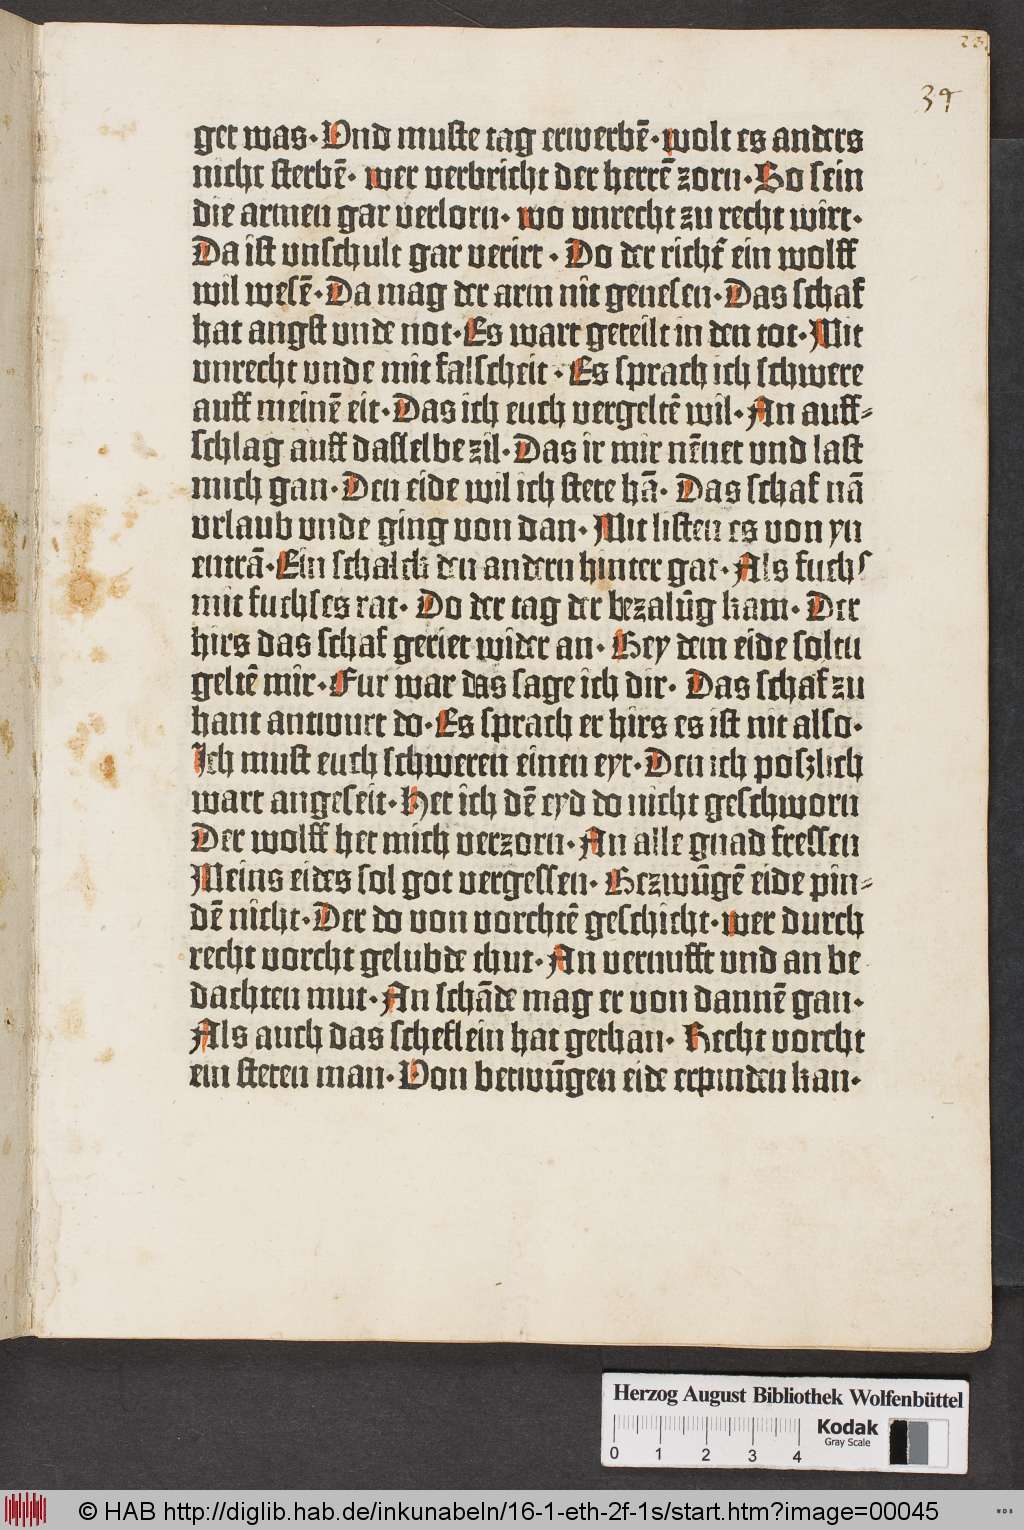 23.
34
get was· Vnd muste tag erwerbē· wolt es anders
nicht sterbē· wer verbricht der herrē zorn· So sein
die armen gar verlorn· wo vnrecht zu recht wirt·
Da ist vnschult gar verirt· Do der richt̄ ein wolff
wil wesē· Da mag der arm nit genesen· Das schaf
hat angst vnde not· Es wart geteilt in den tot· Mit
vnrecht vnde mit falscheit· Es sprach ich schwere
auff meinē eit· Das ich euch vergeltē wil· An auff⸗
schlag auff dasselbe zil· Das ir mir nēnet vnd last
mich gan· Den eide wil ich stete hā· Das schaf nā
vrlaub vnde ging von dan· Mit listen es von yn
entrā· Ein schalck den andern hinter gat· Als fuchs
mit fuchses rat· Do der tag der bezalūg kam· Der
hirs das schaf geriet wider an· Bey dem eide soltu
geltē mir· Fur war das sage ich dir· Das schaf zu
hant antwurt do· Es sprach er hirs es ist nit also·
Ich must euch schweren einen eyt· Den ich poszlich
wart angeseit· Het ich dē eyd do nicht geschworn
Der wolff het mich verzorn· An alle gnad fressen
Meins eides sol got vergessen· Bezwūgē eide pin⸗
dē nicht· Der do von vorchtē geschicht· wer durch
recht vorcht gelubde thut· An vernufft vnd an be
dachten mut· An schāde mag er von dannē gan·
Als auch das scheflein hat gethan· Recht vorcht
ein steten man· Von betwūgen eide erpinden kan·
Herzog August Bibliothek Wolfenbüttel
0 1 2 3 4
Kodak
Gray Scale
© HAB http://diglib.hab.de/inkunabeln/16-1-eth-2f-1s/start.htm?image=00045